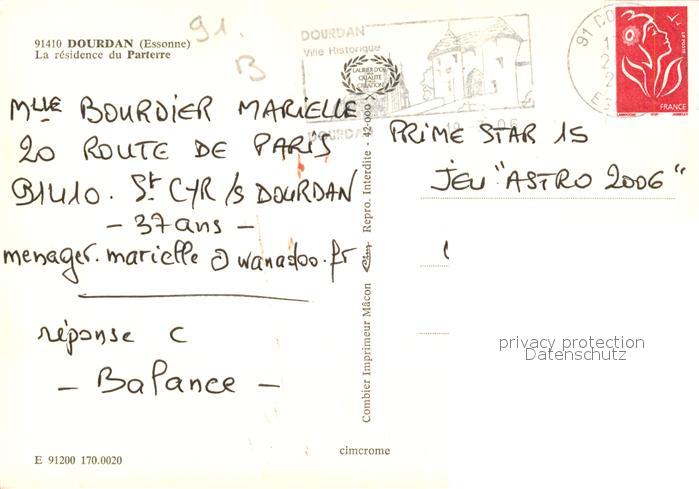 91410 DOURDAN (Essonne)
La résidence du Parterre
91.
B
DOURDAN
Ville Historique
LAURIER D'OR
DE LA
QUALITÉ
CRÉATION
DOURDAN
LA POSTE
FRANCE
Mlle BOURDIER MARIELLE
20 ROUTE DE PARIS
91410. St CYR /S DOURDAN
- 37 ans -
menager.marielle @ wanadoo.fr
réponse C
- Balance -
E 91200 170.0020
Combier Imprimeur Mâcon
Repro. Interdite - 42-009
cimcrome
PRIME STAR 15
JEU "ASTRO 2006"
privacy protection
Datenschutz